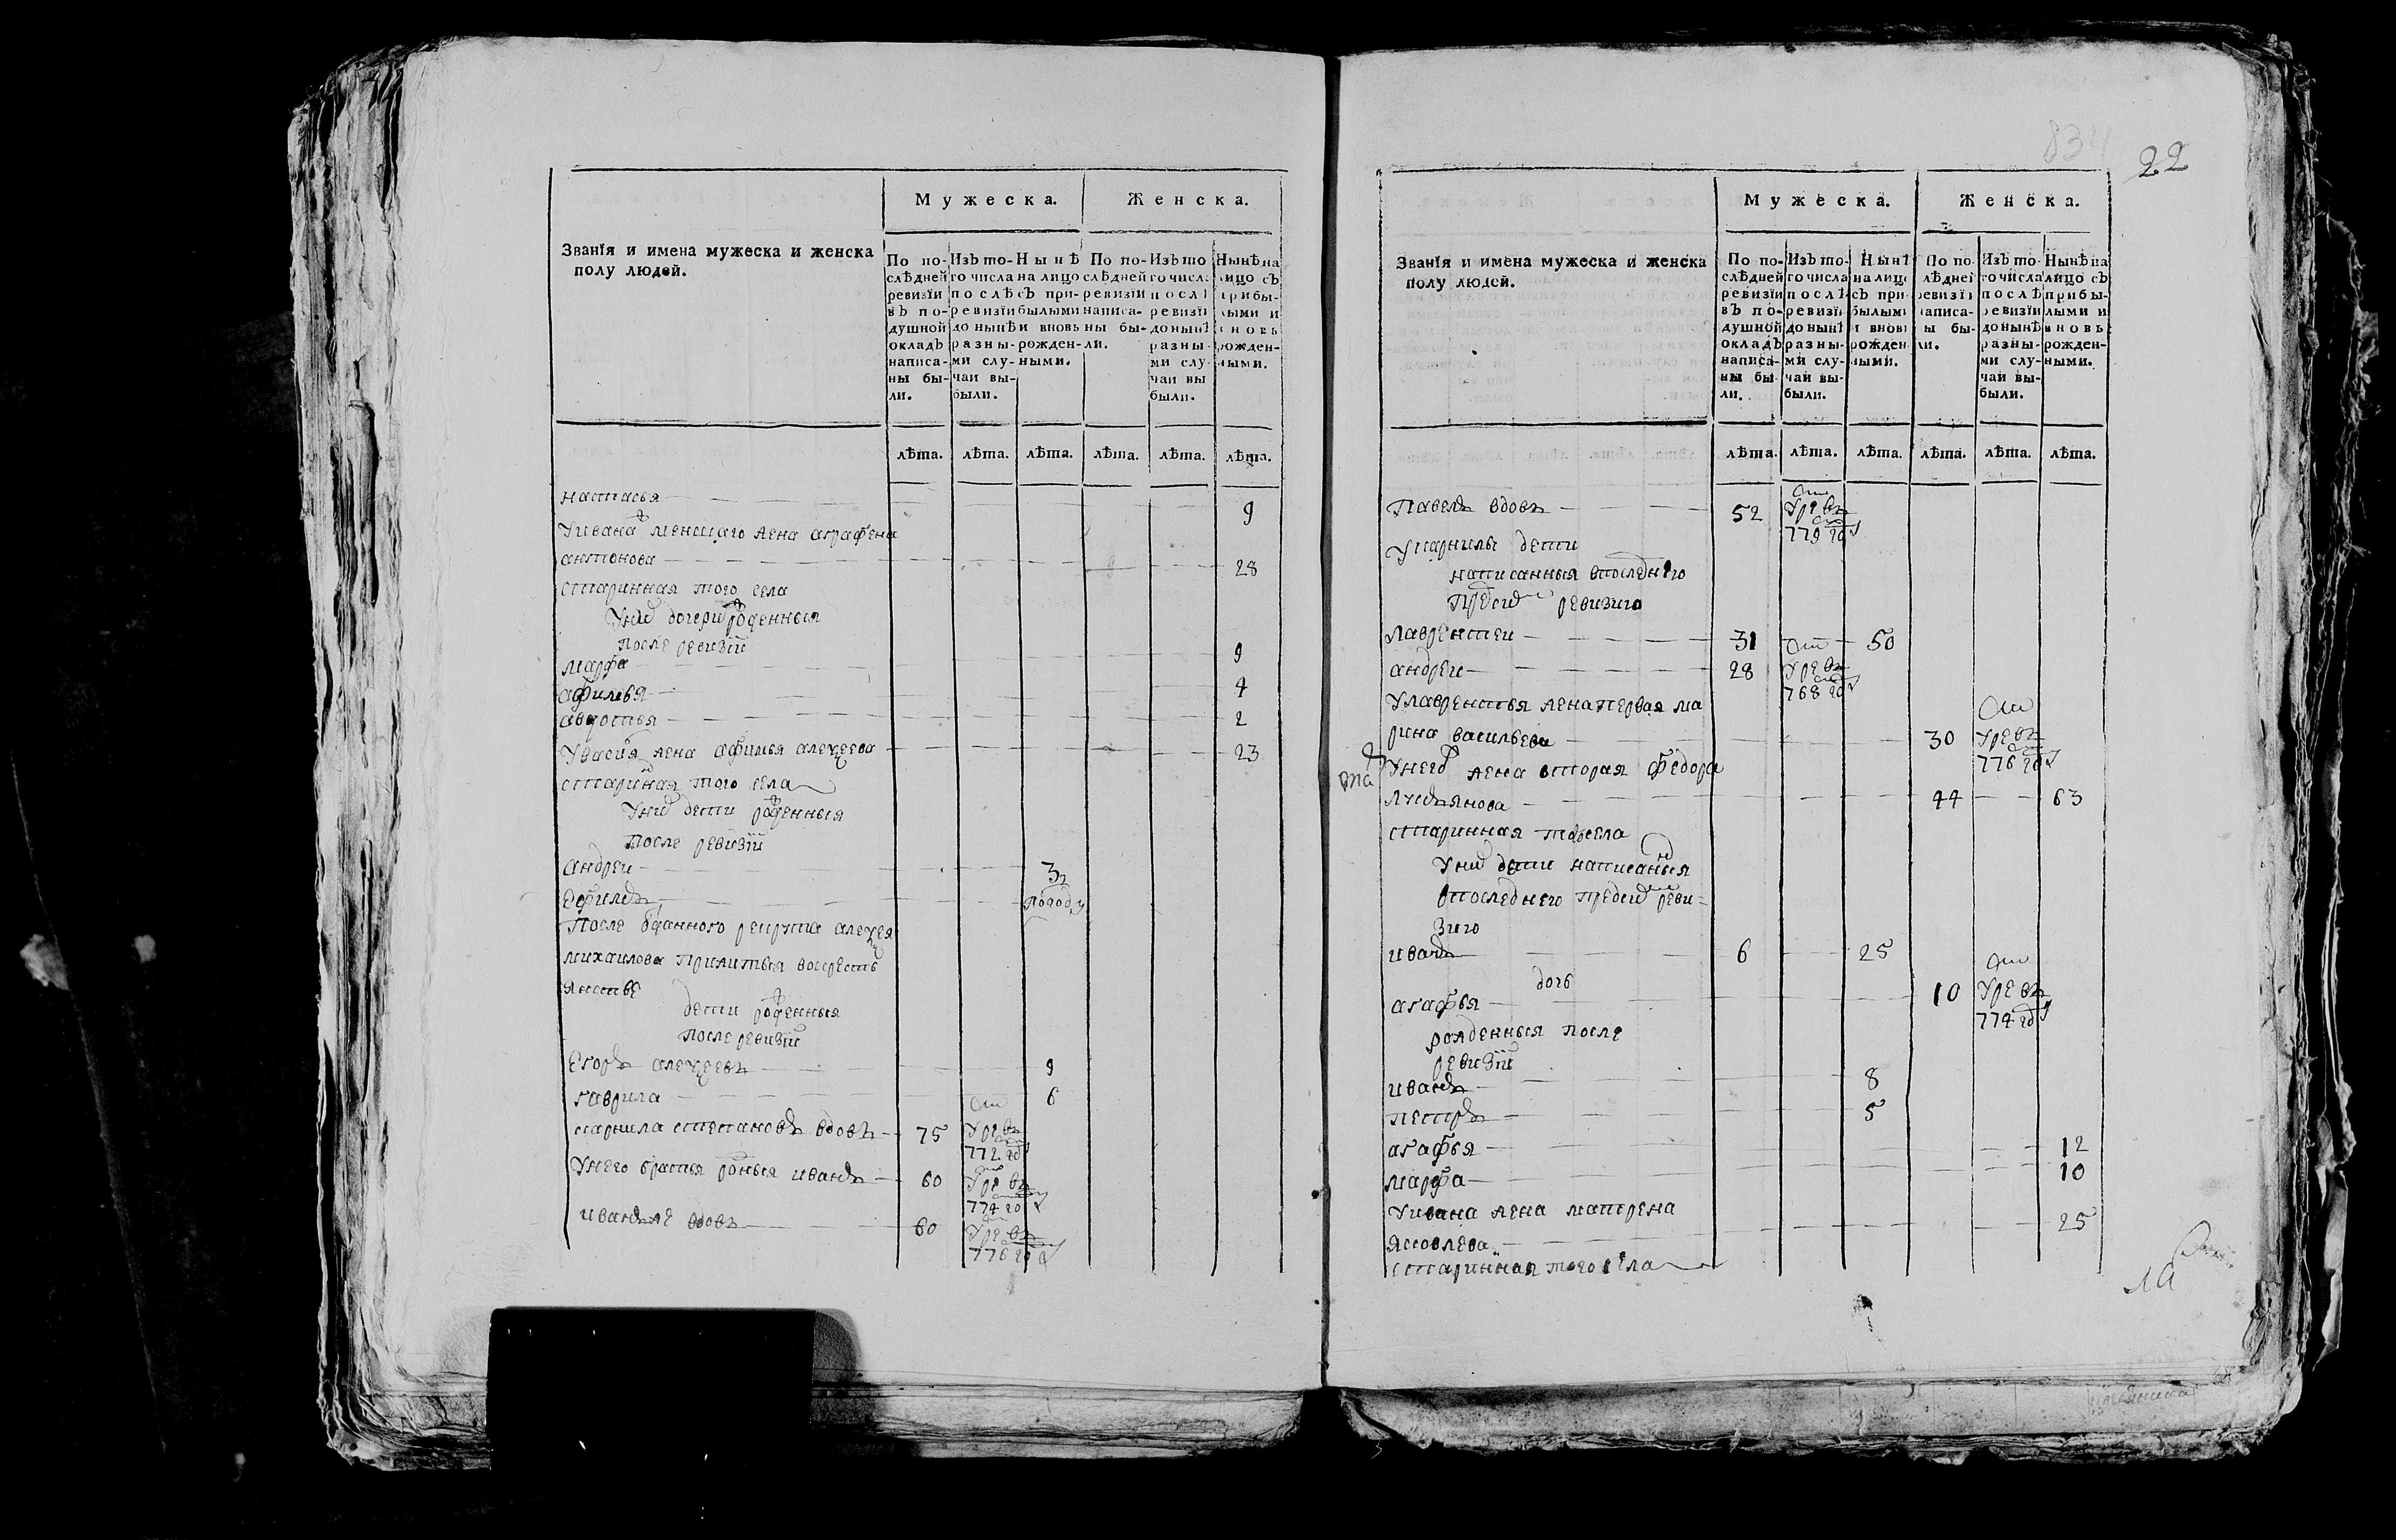 Мужеска. Женска.
Званїя и имена мужеска и женска
полу людей.
По по-
слѣдней
ревизїи
вЪ по-
душной
окладЪ
написа-
ны бы-
ли.
ИзЪ то-
го числа
послѣ
ревизїи
до нынѣ
разны-
ми слу-
чаи вы-
были.
Нынѣ
на лицо
сЪ при-
былыми
и вновь
рожден-
ными.
По по-
слѣдней
ревизїи
написа-
ны бы-
ли.
ИзЪ то
го числа
послѣ
ревизїи
до нынѣ
разны-
ми слу
чаи вы
были.
Нынѣ на
лицо сЪ
прибы-
лыми и
вновь
рожден-
ными.
лѣта. лѣта. лѣта. лѣта. лѣта. лѣта.
настасья 9
Уивана меншаго жена аграфена
антонова 28
старинная того села
Уних дочери рожденныя
после ревизїи
марфа 9
афимья 4
авдотья 2
Увасилья жена афимья алексеева 23
старинная того села
Уних дети рожденныя
после ревизїи
андреи 3
ефимъ полоду
После отданного рекрута алексея
михаилова прижитыя вокрестъ
янстве
дети рожденныя
после ревизїи
Егоръ алексеевъ 9
гаврила 6
карнила степановъ вдовъ 75 умре въ 772 году
Унего братья родныя иванъ 60 умре въ 774 году
иванъ же вдовъ 60 умре въ 776 году
834
22
Мужеска. Женска.
Званїя и имена мужеска и женска
полу людей.
По по-
слѣдней
ревизїи
вЪ по-
душной
окладЪ
написа-
ны бы
ли.
ИзЪ то-
го числа
послѣ
ревизїи
до нынѣ
разны-
ми слу-
чаи вы-
были.
Нынѣ
на лицо
сЪ при-
былыми
и вновь
рожден
ными.
По по-
слѣдней
ревизїи
написа-
ны бы-
ли.
ИзЪ то-
го числа
послѣ
ревизїи
до нынѣ
разны-
ми слу-
чаи вы-
были.
Нынѣ на
лицо сЪ
прибы-
лыми и
вновь
рожден-
ными.
лѣта. лѣта. лѣта. лѣта. лѣта. лѣта.
Павелъ вдовъ 52 умре въ 779 году
Укарнилы дети
написанныя впоследнюю
пред сим ревизию
лаврентеи 31 50
андреи 28 умре въ 768 году
Улаврентья жена первая ма
рина васильева 30 умре въ 776 году
Унего жена вторая федора
лукьянова 44 63
старинная того села
Уних дети написанныя
впоследнюю пред сим реви-
зию
иванъ 6 25
дочь
агафья 10 умре въ 774 году
рожденныя после
ревизїи
иванъ 8
петръ 5
агафья 12
марфа 10
Уивана жена матрена
яковлева 25
старинная того села